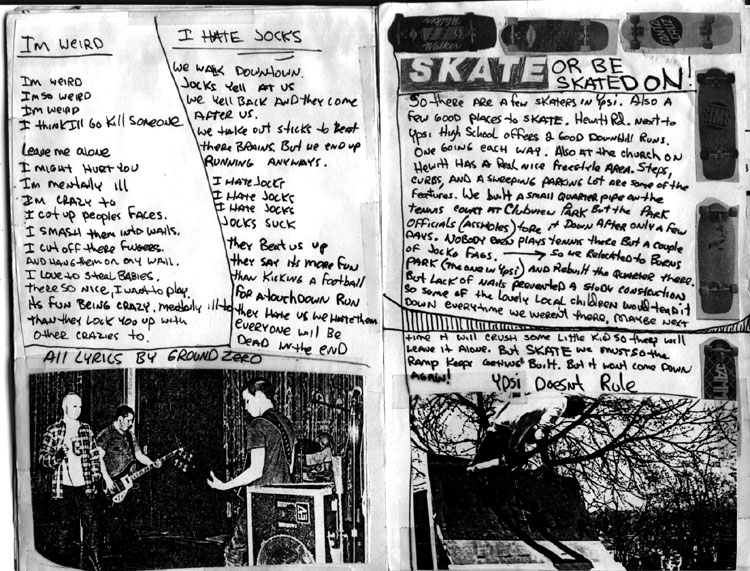 I'm WEIRD
Im WEIRD
Im so WEIRD
Im WEIRD
I think Ill go Kill someone
Leave me alone
I might Hurt you
I'm mentally ill
I'm CRAZY to
I cut up peoples faces.
I smash them into walls.
I cut off there fingers.
And hang them on my wall.
I love to steal Babies.
there so nice, I want to play.
Its fun BEING CRAZY, mentally ill to
than they Lock you up with
other CRAZIES to.
I HATE JOCKS
WE WALK DOWNTOWN.
JOCKS YELL AT US
WE YELL BACK AND they come
AFTER US.
WE take OUT STICKS to BEAT
there BRAINS. BUT WE END UP
RUNNING ANYWAYS.
I HATE JOCKS
I HATE JOCKS
I HATE JOCKS
JOCKS SUCK
they BEAT US UP
they say its more FUN
than KICKING A football
FOR A TOUCHDOWN RUN
they Hate us WE HAte them
EVERYONE will BE
DEAD IN the END
All LYRICS BY GROUND ZERO
EV
Walker
SKATE OR BE
SKATED ON!
So there ARE A few SKATERS IN YPSI. Also A
few Good places to SKATE. Hewitt Rd. Next to
YPSI High School offers 2 GOOD DOWNHill RUNS.
ONE going EACH WAY. Also At the church ON
Hewitt HAS A REAL NICE freestyle AREA. Steps,
CURBS, AND A SWEEPING PARKING LOT ARE some of the
features. We built A SMALL QUARTER pipe ON the
tennis court At Clubview PARK But the PARK
officials (Assholes) tore it DOWN After ONLY A few
DAYS. NOBODY EVEN plays tennis there But A couple
of Jocko FAGS. → So we RELOCATED to BURNS
PARK (the one in YPSI) AND REBUILT the QUARTER there.
But LACK of NAILS PREVENTED A STUDY CONSTRUCTION
So some of the Lovely Local children would tear it
DOWN EVERYTIME WE WEREN'T there, MAYBE NEXT
time it will CRUSH some Little Kid so they will
leave it Alone. But SKATE WE MUST so the
RAMP KEEPS GETTING BUILT. But it WONT come DOWN
AGAIN!
YPSI Doesnt Rule